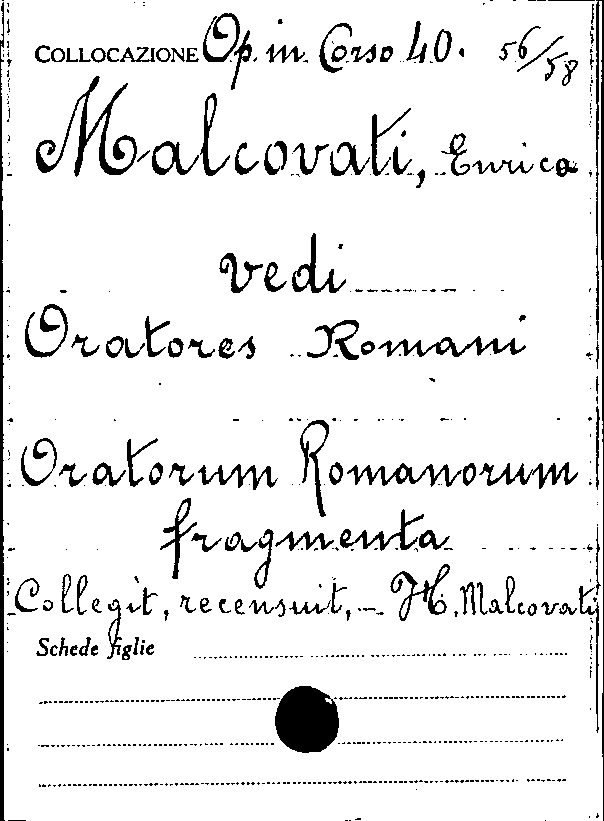 COLLOCAZIONE Op. in Corso 40. 56/58
Malcovati, Enrica
vedi
Oratores Romani
Oratorum Romanorum
fragmenta
Collegit, recensuit, – H. Malcovati
Schede figlie